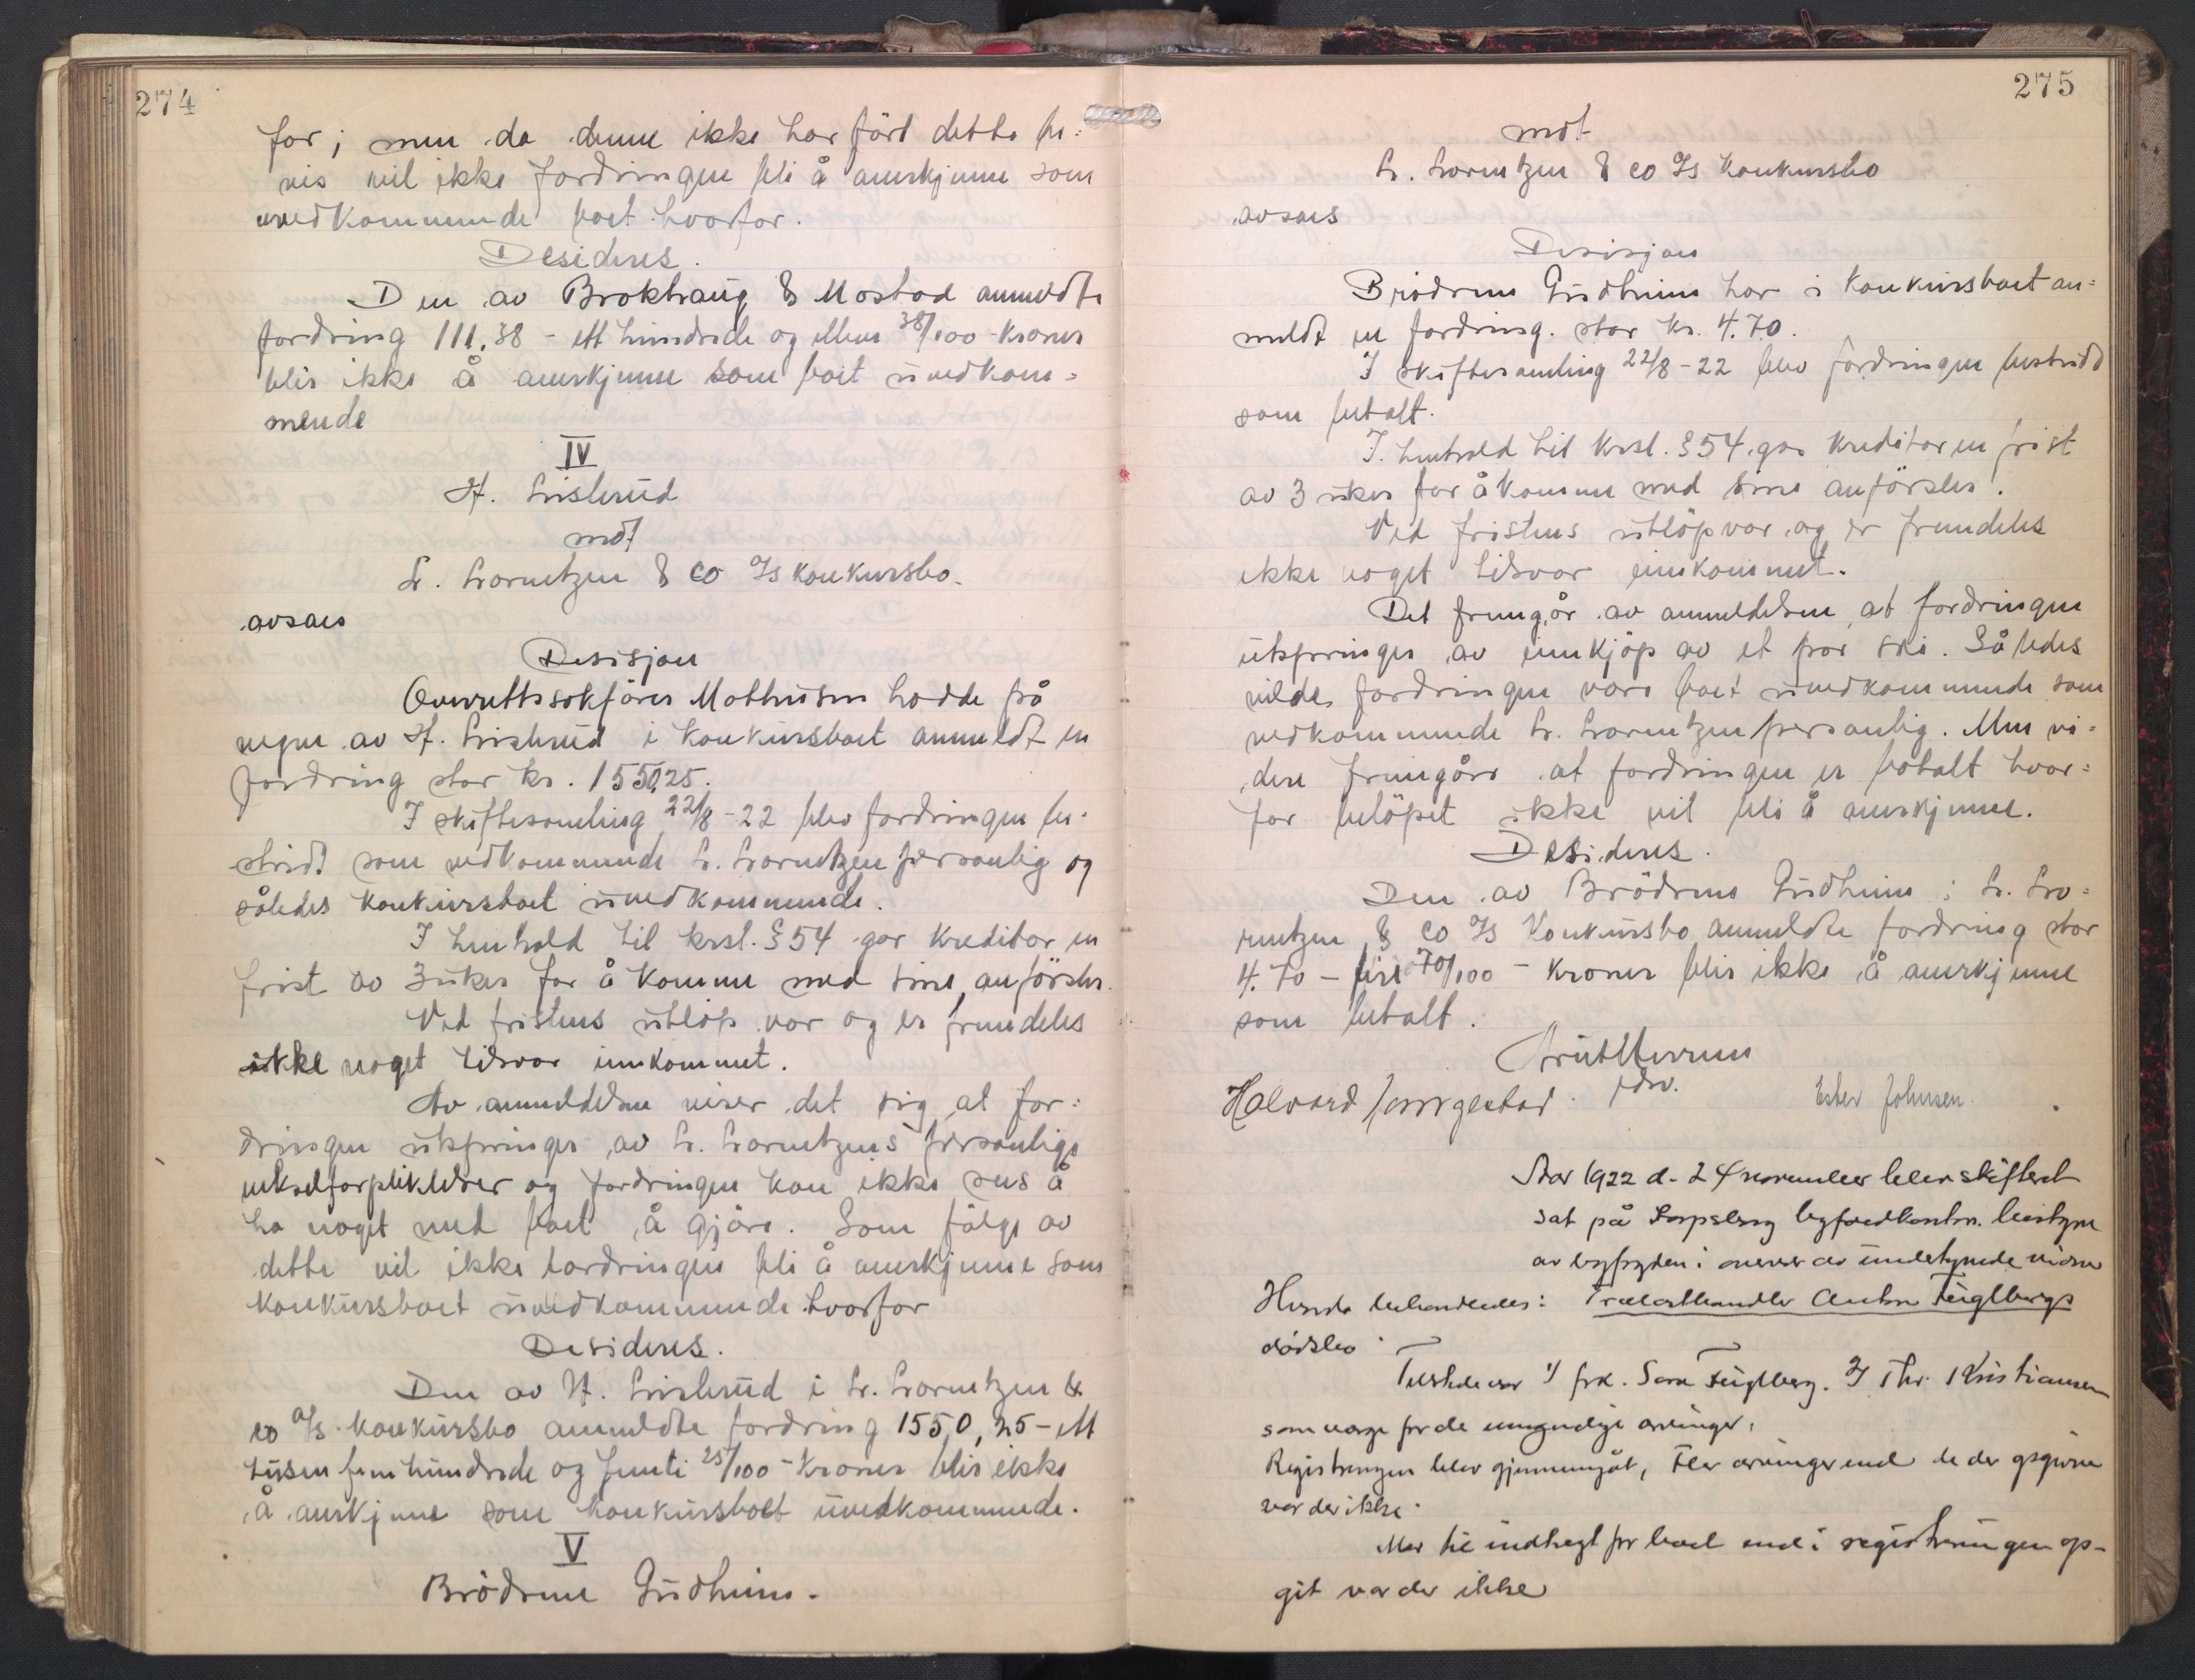 274
for; men da denne ikke har fört dette be=
vis vil ikke fordringen bli å anerkjenne som
uvedkommende boet hvorfor.
Desideres.
Den av Brokhaug & Mostad anmeldte
fordring 111.38 - ett hundrede og elleve 38/100 - kroner
blir ikke å anerkjenne som boet uvedkom=
mende
IV
H. Lisletrud
mot
L. Lorentzen & co A/s konkursbo.
avsaes
Desisjon
Overrettssakförer Mathisen hadde på
vegne av H. Lisletrud i konkursboet anmeldt en
fordring stor kr. 1550,25.
I skiftesamling 22/8 - 22 blev fordringen be=
stridt som vedkommende L. Lorentzen personlig og
således konkursboet uvedkommende.
I henhold til krsl. § 54 gav kreditor en
frist av 3 uker for å komme med sine anförsler.
Ved fristens utlöp var og er fremdeles
ikke noget tilsvar innkommet.
Av anmeldelsen viser det sig at for=
dringen utspringer av L. Lorentzens personlige
vekselforpliktelser og fordringen kan ikke sees å
ha noget med boet å gjöre. Som fölge av
dette vil ikke fordringen bli å anerkjenne som
konkursboet uvedkommende hvorfor
Desideres.
Den av H. Lisletrud i L. Lorentzen &
co A/s konkursbo anmeldte fordring 1550,25 - ett
tusen femhundrede og femti 25/100 - kroner blir ikke
å anerkjenne som konkursboet uvedkommende.
V
Brödrene Gudheim.
275
mot
L. Lorentzen & co A/s konkursbo
avsaes
Desisjon
Brödrene Gudheim har i konkursboet an=
meldt en fordring stor kr. 4.70.
I skiftesamling 22/8 - 22 blev fordringen bestridt
som betalt.
I henhold til krsl. § 54 gav kreditor en frist
av 3 uker for å komme med sine anförsler.
Ved fristens utlöp var og er fremdeles
ikke noget tilsvar innkommet.
Det fremgår av anmeldelsen at fordringen
utspringer av innkjöp av et par ski. Således
vilde fordringen være boet uvedkommende som
vedkommende L. Lorentzen personlig. Men vi=
dere fremgår at fordringen er betalt hvor=
for belöpet ikke vil bli å anerkjenne.
Desideres.
Den av Brödrene Gudheim i L. Lo=
rentzen & co A/s konkursbo anmeldte fordring stor
4.70 - fire 70/100 - kroner blir ikke å anerkjenne
som betalt.
Halvard
Ester Johnsen.
Aar 1922 d. 24 november blev skifteret
sat på Sarpsborg byfoedkontor. bestyret
av byfogden i nærvær av undertegnede vidner
Herunder behandledes: Trælasthandler Anton Fuglbergs
dödsbo.
Tilstede var 1) frk. Sara Fuglberg. 2) Thv. Kristiansen
som verge for de umyndige arvinger.
Registreringen blev gjennemgåt, Fler arvinger end de der opgivne
var der ikke.
Mer til indtægt for boet end i registreringen op-
git var der ikke